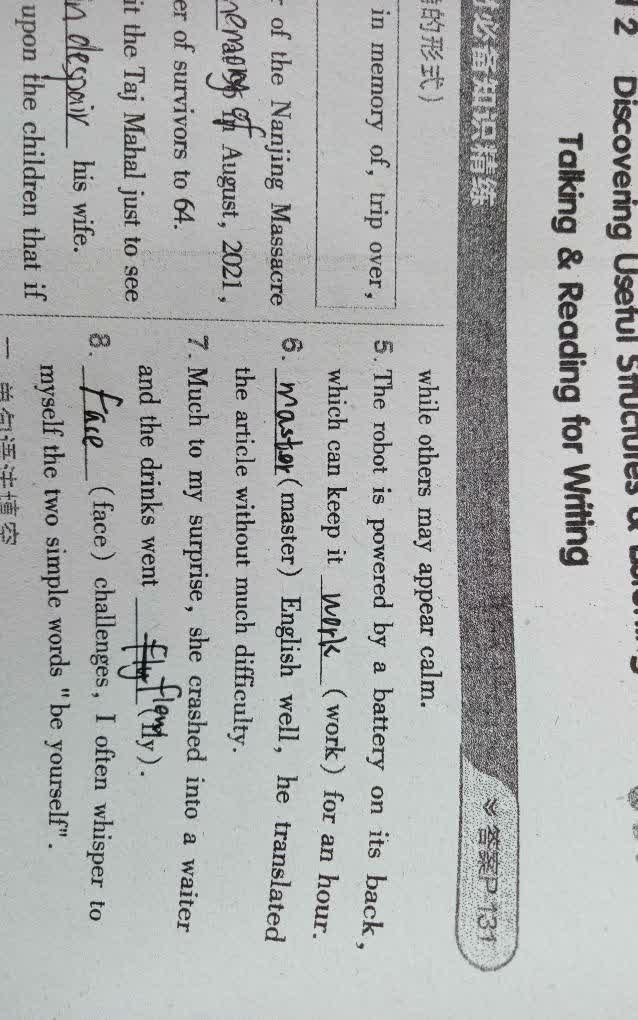 2 Discovering Useful Structures &
Talking & Reading for Writing
必备知识精练
答案P131
的形式)
in memory of, trip over,
of the Nanjing Massacre
August, 2021,
er of survivors to 64.
it the Taj Mahal just to see
in despair his wife.
upon the children that if
while others may appear calm.
5. The robot is powered by a battery on its back,
which can keep it work (work) for an hour.
6. master (master) English well, he translated
the article without much difficulty.
7. Much to my surprise, she crashed into a waiter
and the drinks went (fly).
8. face (face) challenges, I often whisper to
myself the two simple words "be yourself".
一 单句语法填空